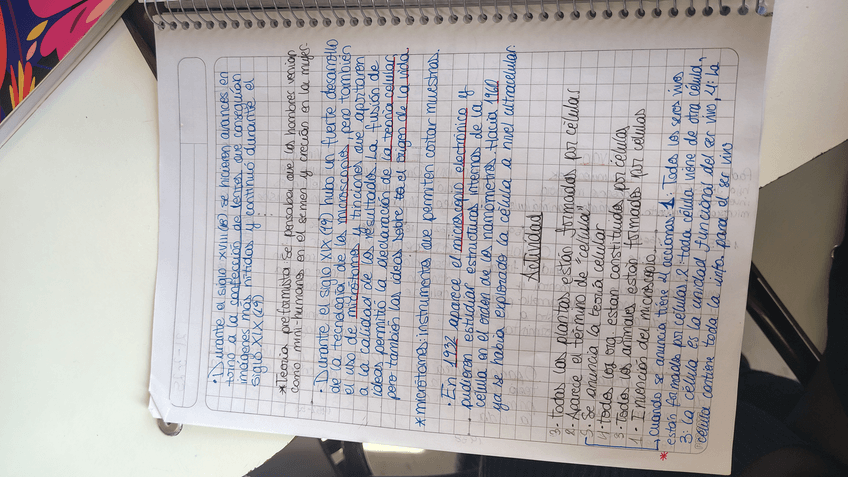 • Durante el siglo XVIII (18) se hicieron avances en
torno a la confección de lectos, que conseguían
imágenes más nítidas y continuó durante el
siglo XIX (19)
*Teoría preformista se pensaba que los hombres venían
como mini-humanos en el semen y crecían en la mujer.
• Durante el siglo XIX (19) hubo un fuerte desarrollo
de la tecnología de los microscopios, pero también
el uso de micrótomos y tinciones que aportaron
a la calidad de los resultados. La fusión de
ideas permitió la declaración de la teoría celular,
pero también las ideas sobre el origen de la vida.
*micrótomos: instrumentos que permiten cortar muestras.
• En 1932 aparece el microscopio electrónico y
pudieron estudiar estructuras internas de la
célula en el orden de los nanómetros. Hacia 1960
ya se había explorado la célula a nivel ultracelular.
Actividad
3. Todas las plantas están formadas por células
2. Aparece el término de "célula"
5. Se anuncia la teoría celular
4. Todos los org están constituidos por células
3. Todos los animales están formados por células
1. Invención del microscopio
* cuando se anuncia tiene 4 axiomas 1: Todos los seres vivos
están formados por células 2: toda célula viene de otra célula,
3: La célula es la unidad funcional del ser vivo, 4: La
célula contiene toda la info para el ser vivo